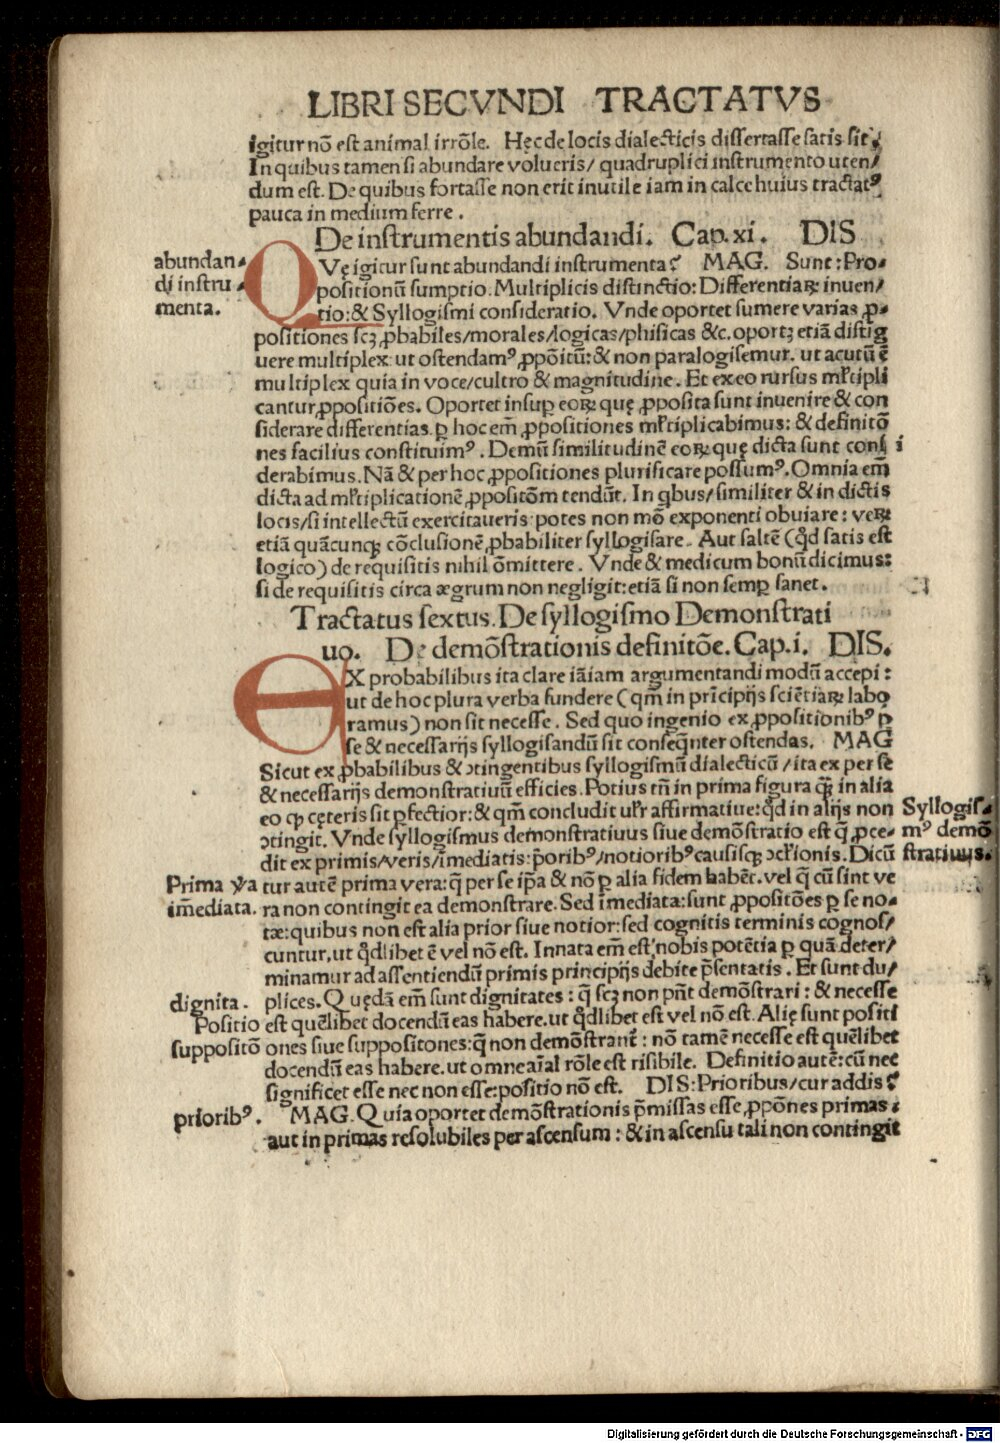 LIBRI SECVNDI TRACTATVS
igitur nō est animal irrōle. Hęc de locis dialecticis dissertasse satis sit:
In quibus tamen si abundare volueris/ quadruplici instrumento uten/
dum est. De quibus fortasse non erit inutile iam in calce huius tractatꝰ
pauca in medium ferre.
De instrumentis abundandi. Cap. xi. DIS
abundan-
di instru-
menta.
QVę igitur sunt abundandi instrumenta? MAG. Sunt: Pro-
positionū sumptio. Multiplicis distinctio: Differentiaꝝ inuen/
tio: & Syllogismi consideratio. Vnde oportet sumere varias ꝓ-
positiones scꝫ ꝓbabiles/morales/logicas/phisicas &c. oportꝫ etiā distig
uere multiplex: ut ostendamꝰ ꝓpōitū: & non paralogisemur. ut acutū ē
multiplex quia in voce/cultro & magnitudine. Et ex eo rursus mľtipli
cantur ꝓpositiōes. Oportet insuꝑ eoꝝ quę ꝓposita sunt inuenire & con
siderare differentias. ꝑ hoc em̄ ꝓpositiones mľtiplicabimus: & definitō
nes facilius constituimꝰ. Demū similitudinē eoꝝ quę dicta sunt consi
derabimus. Nā & per hoc ꝓpositiones plurificare possumꝰ. Omnia em̄
dicta ad mľtiplicationē ꝓpositōm tendūt. In qbus/similiter & in dictis
locis/si intellectū exercitaueris potes non mō exponenti obuiare: veꝝ
etiā quācunqꝫ cōclusionē ꝓbabiliter syllogisare. Aut saltē (qd satis est
logico) de requisitis nihil ōmittere. Vnde & medicum bonū dicimus:
si de requisitis circa ægrum non negligit: etiā si non semꝑ sanet.
Tractatus sextus. De syllogismo Demonstrati
uo. De demōstrationis definitōe. Cap. i. DIS.
EX probabilibus ita clare iāiam argumentandi modū accepi:
ut de hoc plura verba fundere (qm̄ in prīcipijs sciētiaꝝ labo
ramus) non sit necesse. Sed quo ingenio ex ꝓpositionibꝰ ꝑ
se & necessarijs syllogisandū sit conseq̄nter ostendas. MAG
Sicut ex ꝓbabilibus & ↄtingentibus syllogismū dialecticū/ita ex per se
& necessarijs demonstratiuū efficies. Potius tn̄ in prima figura qꝫ in alia
eo ꝙ cęteris sit ꝑfectior: & qm̄ concludit uľr affirmatiue: qd in alijs non
ↄtingit. Vnde syllogismus demonstratiuus siue demōstratio est q̄ ꝓce-
dit ex primis/veris/īmediatis: p̄oribꝰ/notioribꝰ causisqꝫ ↄcľionis. Dicū
Syllogis-
mꝰ demō
stratiuus.
tur autē prima vera: q̄ per se ip̄a & nō ꝑ alia fidem habēt. vel q̄ cū sint ve
ra non contingit ea demonstrare. Sed īmediata: sunt ꝓpositōes ꝑ se no-
Prima va
im̄ediata.
tæ: quibus non est alia prior siue notior: sed cognitis terminis cognos/
cuntur, ut qdlibet ē vel nō est. Innata em̄ est nobis potētia ꝑ quā deter/
minamur ad assentiendū primis principijs debite p̄sentatis. Et sunt du/
plices. Quędā em̄ sunt dignitates: q̄ scꝫ non pn̄t demōstrari: & necesse
dignita.
est quēlibet docendū eas habere. ut qdlibet est vel nō est. Alię sunt positi
Positio
ones siue suppositones: q̄ non demōstrant: nō tamē necesse est quēlibet
suppositō
docendū eas habere. ut omne aīal rōle est risibile. Definitio autē: cū nec
significet esse nec non esse: positio nō est. DIS: Prioribus/cur addis?
prioribꝰ.
MAG. Quia oportet demōstrationis p̄missas esse ꝓpōnes primas.
aut in primas resolubiles per ascensum: & in ascensu tali non contingit
Digitalisierung gefördert durch die Deutsche Forschungsgemeinschaft - DFG